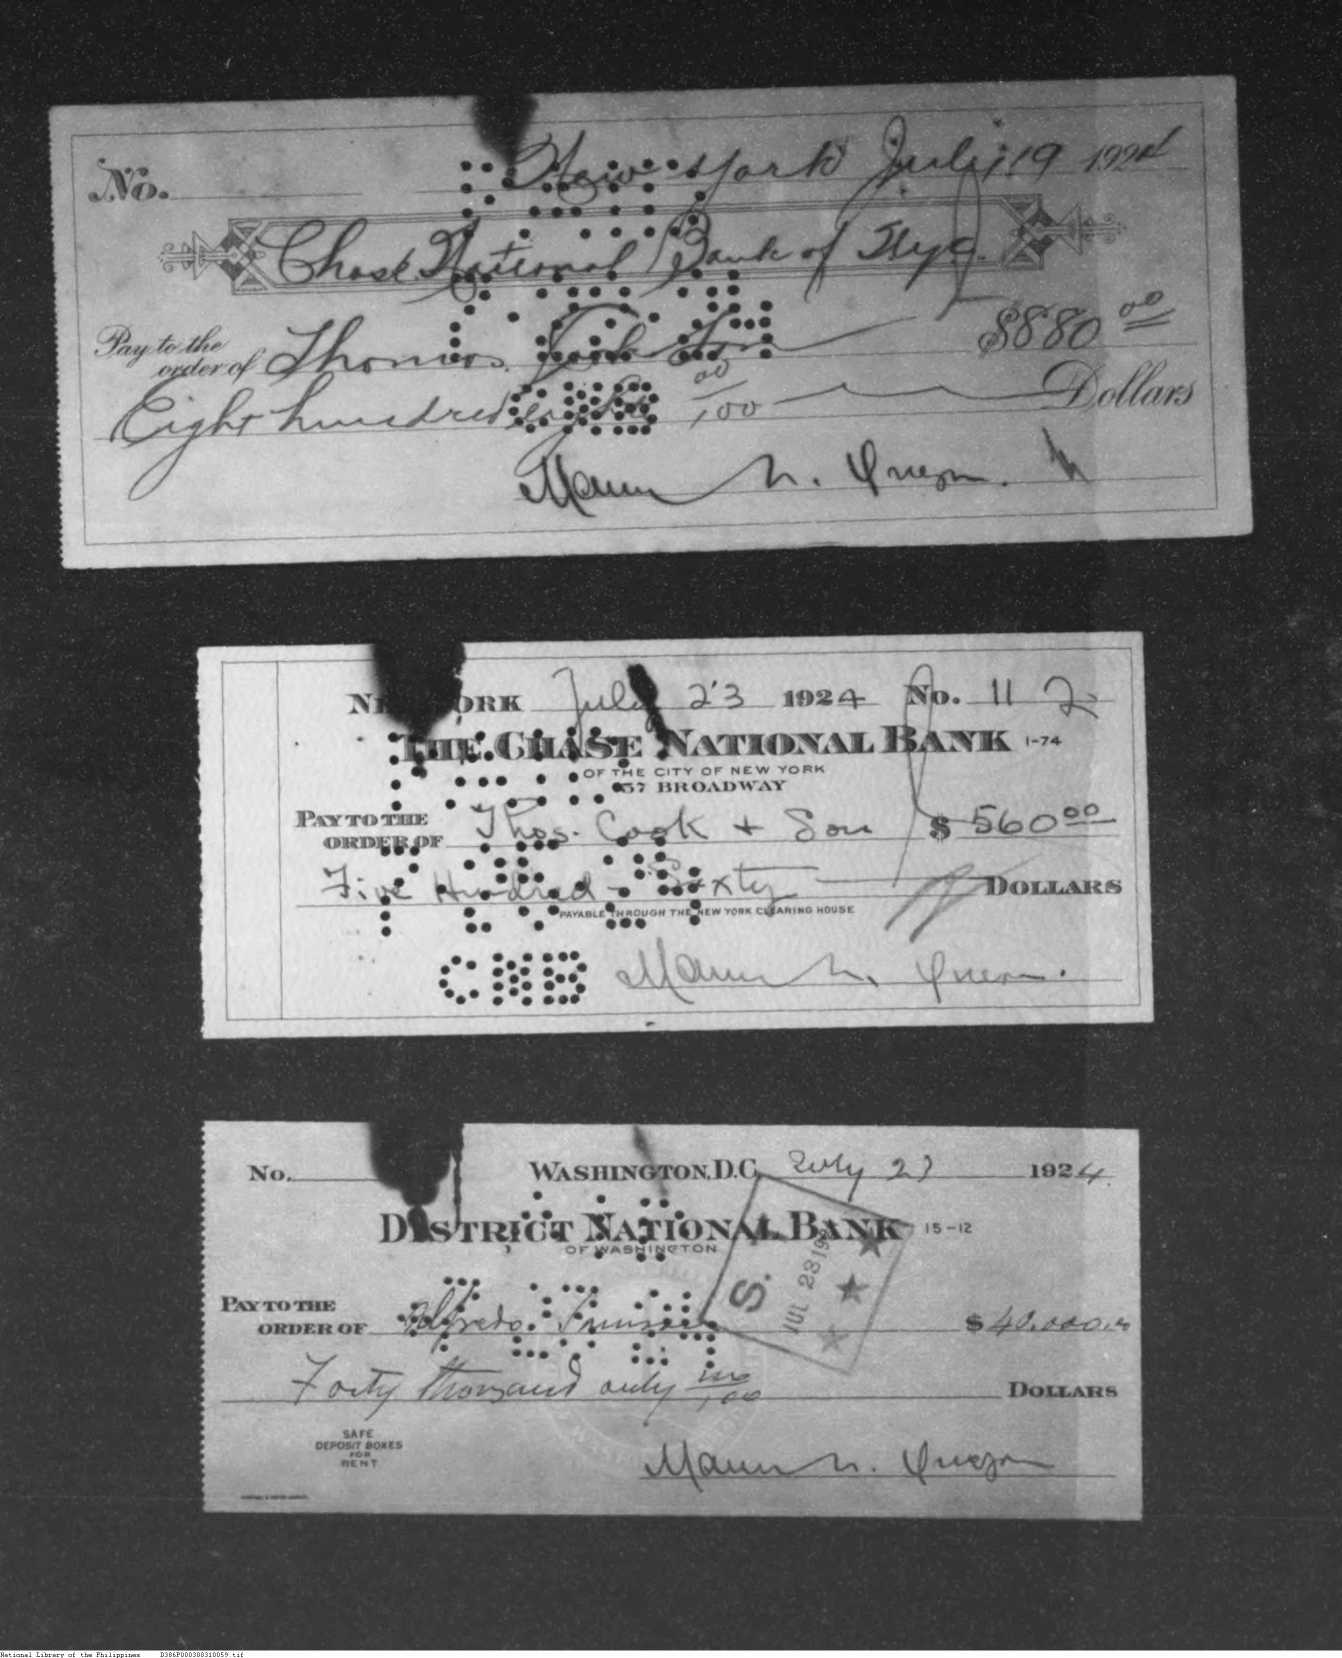 New York July 19 1924
No.
Chase National Bank of N.Y.C.
Pay to the
order of Thomas Cook & Son $880 00
Eight hundred eighty 00/100 Dollars
Manuel L. Quezon.
New York July 23 1924 No. 112
The Chase National Bank 1-74
OF THE CITY OF NEW YORK
57 BROADWAY
PAY TO THE
ORDER OF Thos. Cook & Son $ 560 00
Five Hundred - Sixty DOLLARS
PAYABLE THROUGH THE NEW YORK CLEARING HOUSE
CNB
Manuel L. Quezon.
No. WASHINGTON, D.C. July 23 1924
DISTRICT NATIONAL BANK 15-12
OF WASHINGTON
S. JUL 23 192
PAY TO THE
ORDER OF Alfredo $ 40,000.00
Forty thousand only no/100 DOLLARS
SAFE
DEPOSIT BOXES
FOR
RENT
Manuel L. Quezon
National Library of the Philippines D386P000300310059.tif